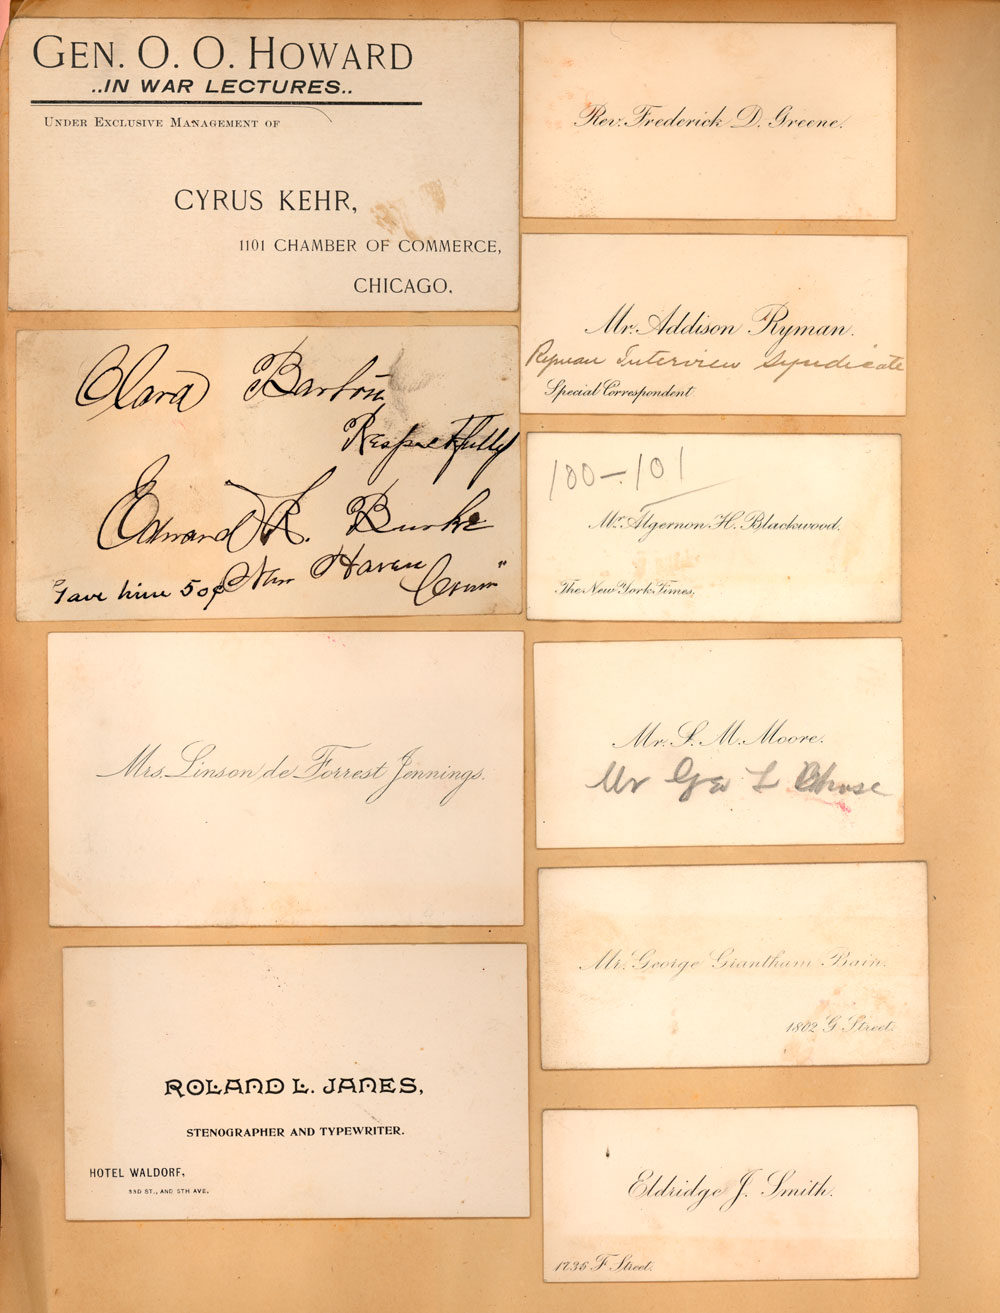 GEN. O. O. HOWARD
..IN WAR LECTURES..
UNDER EXCLUSIVE MANAGEMENT OF
CYRUS KEHR,
1101 CHAMBER OF COMMERCE,
CHICAGO.
Clara Barton
Respectfully
Edward R. Burke
New Haven
Conn"
"Gave him 50¢
Mrs. Linson de Forrest Jennings.
ROLAND L. JANES,
STENOGRAPHER AND TYPEWRITER.
HOTEL WALDORF,
33D ST., AND 5TH AVE.
Rev. Frederick D. Greene.
Mr. Addison Ryman.
Ryman Interview Syndicate
Special Correspondent
100-101
Mr. Algernon H. Blackwood.
The New York Times,
Mr. S. M. Moore.
Mr Geo L Chase
Mr. George Grantham Bain.
1802 G Street.
Eldridge J. Smith.
1735 F Street.